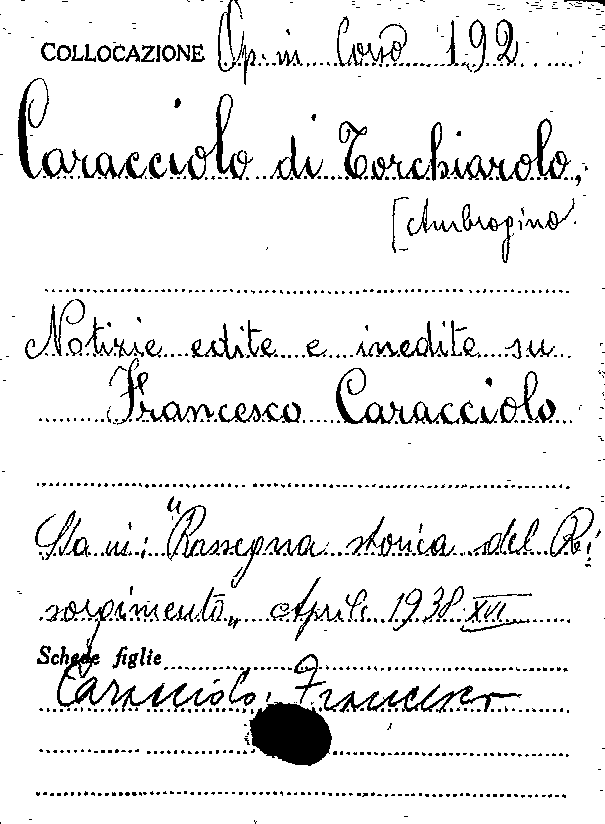 COLLOCAZIONE Op. in Corso 192
Caracciolo di Torchiarolo,
[Ambrogino
Notizie edite e inedite su
Francesco Caracciolo
Sta in: "Rassegna storica del Ri
sorgimento„ Aprile 1938 XVI
Schede figlie
Caracciolo, Francesco